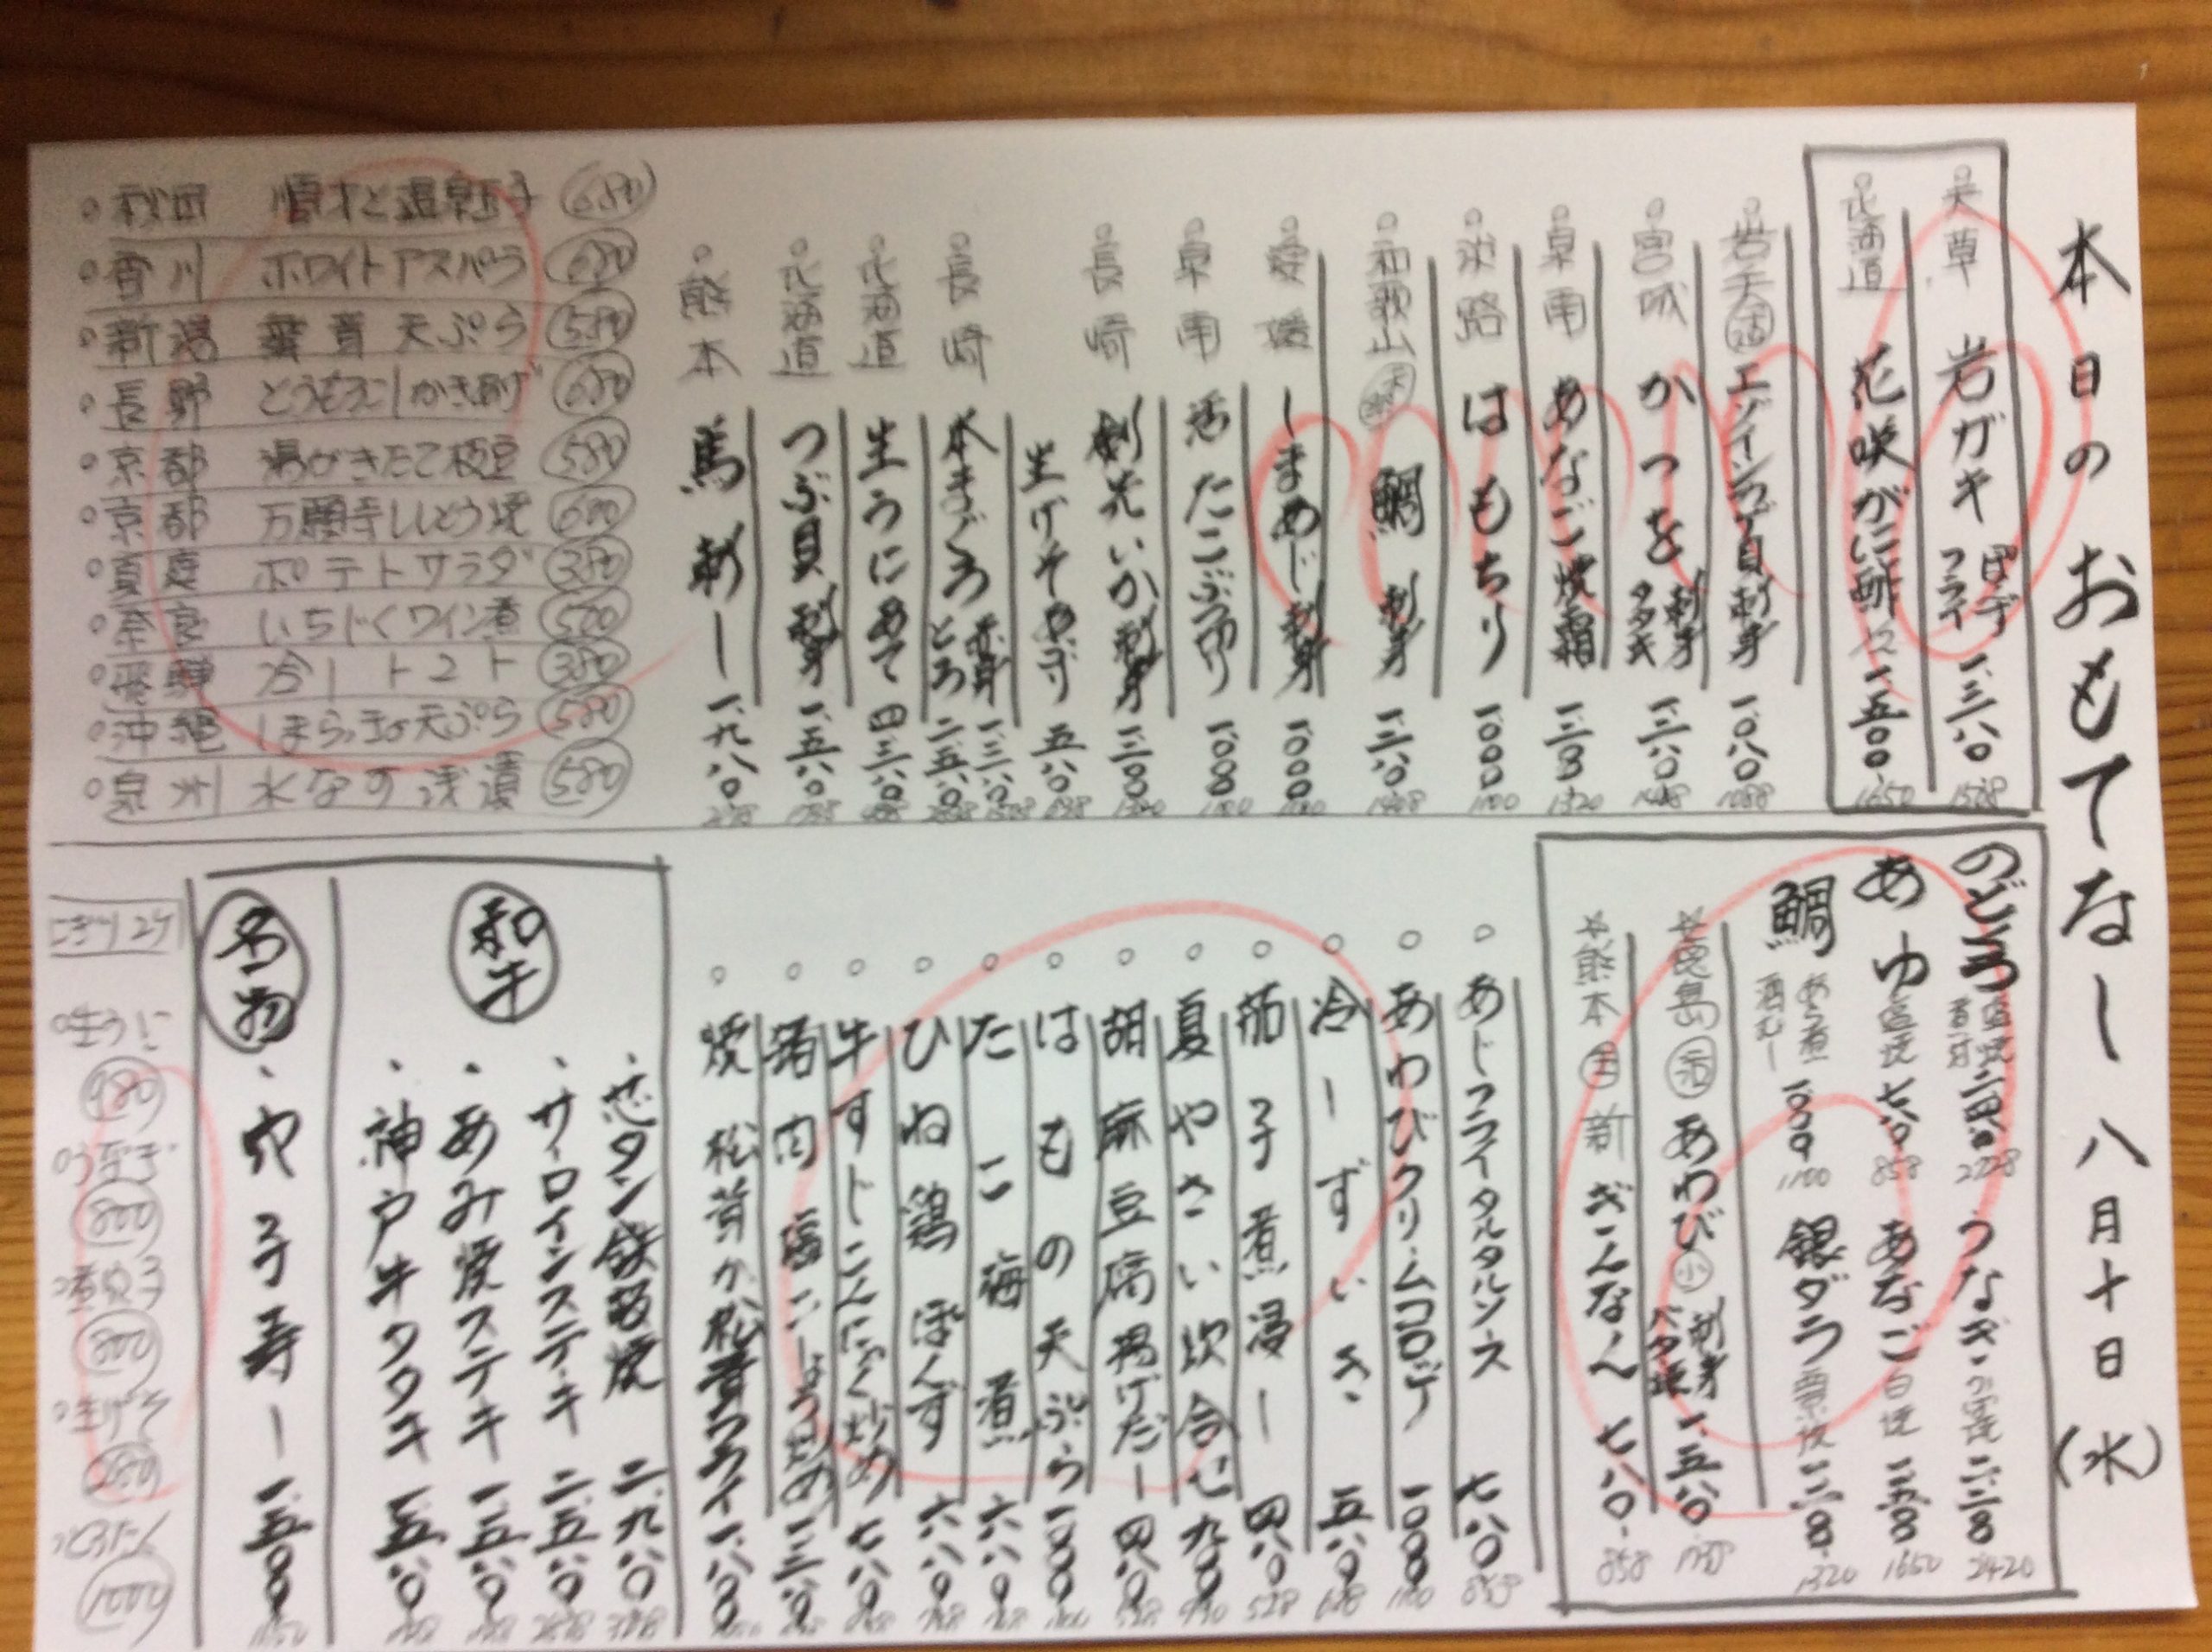 本日のおもてなし 八月十日(水)
天草 岩ガキ ポンズ フライ 一、三八〇
北海道 花咲がに酢 一、五〇〇 1650
岩天 活 エゾイシカゲ貝 刺身 一、〇八〇
宮城 かつを 刺身 タタキ 一、二八〇
泉南 あなご焼霜
淡路 はもちり 一、〇〇〇 1100
和歌山 鯛 刺身 一、二八〇
愛媛 しまあじ 刺身 一、〇〇〇
泉南 活たこぶつ切り
長崎 剣先いか 刺身
生げそ あぶり 五八〇
長崎 本まぐろ 赤身 一、三八〇 とろ 二、五八〇
北海道 生うに あて
北海道 つぶ貝 刺身 一、五八〇
熊本 馬刺し 一、九八〇
秋田 順才と温泉玉子 680
香川 ホワイトアスパラ 680
新潟 舞茸天ぷら 580
長野 とうもろこしかきあげ 680
京都 湯がきたて枝豆 580
京都 万願寺ししとう焼
真夏 ポテトサラダ 380
奈良 いちじくワイン煮
飛騨 冷しトマト 380
沖縄 しまらっきょ天ぷら 580
泉州 水なす浅漬 580
のどぐろ 塩焼 煮付
うなぎ 二、二〇〇 2420
あゆ 塩焼 七八〇 858
あなご 白焼 一、五〇〇 1650
鯛 あら煮 酒むし 一、〇〇〇 1100
銀ダラ 一、二〇〇 1320
徳島 活 あわび 小 刺身 バタ焼 一、五八〇
熊本 新 ぎんなん 七八〇 858
あじフライタルタルソース 七八〇 858
あわびクリームコロッケ 一、〇〇〇 1100
冷しずいき 五八〇
茄子煮浸し 四八〇 528
夏やさい炊合せ 九〇〇 990
胡麻豆腐揚げだし 四八〇 528
はもの天ぷら 一、〇〇〇
たこ海煮 六八〇
ひね鶏ぽんず 六八〇
牛すじこんにゃく炒め 七八〇
猪肉塩こしょう炒め
焼松茸か松茸フライ
和牛
芯タン鉄板焼 二、九八〇
サーロインステーキ 二、五八〇
あみ焼ステーキ 一、五八〇
神戸牛タタキ 一、五八〇
名物
穴子寿し 一、五〇〇
にぎり 2ケ
生うに 980
うなぎ 800
煮穴子 800
生げそ 280
とろたく 1000